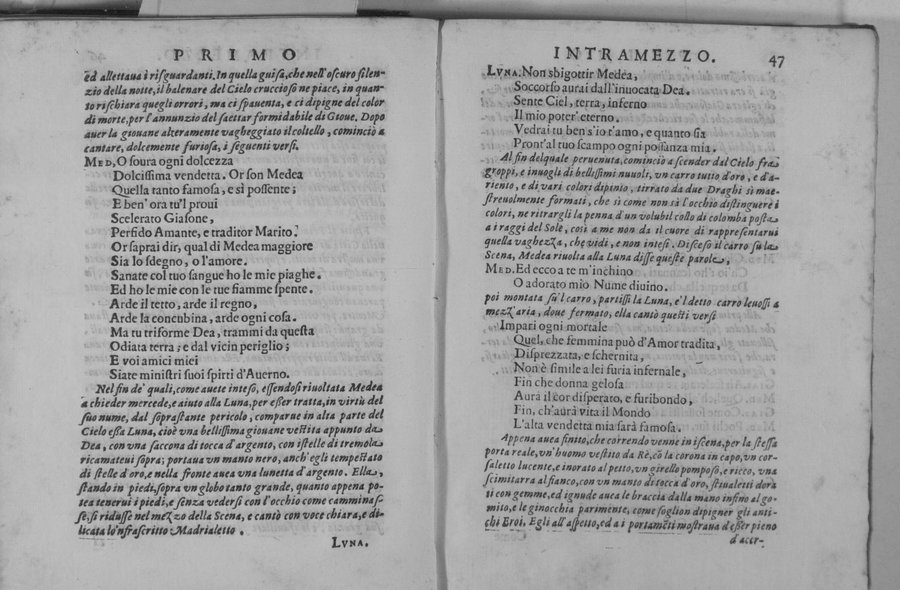 PRIMO
ed allettaua i risguardanti. In quella guisa, che nell'oscuro silen-
zio della notte, il balenare del Cielo cruccioso ne piace, in quan-
to rischiara quegli orrori, ma ci spauenta, e ci dipigne del color
di morte, per l'annunzio del saettar formidabile di Gioue. Dopo
auer la giouane alteramente vagheggiato il coltello, cominciò a
cantare, dolcemente furiosa, i seguenti versi.
MED, O soura ogni dolcezza
Dolcissima vendetta. Or son Medea
Quella tanto famosa, e sì possente;
E ben' ora tu'l proui
Scelerato Giasone,
Perfido Amante, e traditor Marito.
Or saprai dir, qual di Medea maggiore
Sia lo sdegno, o l'amore.
Sanate col tuo sangue ho le mie piaghe.
Ed ho le mie con le tue fiamme spente.
Arde il tetto, arde il regno,
Arde la concubina, arde ogni cosa.
Ma tu triforme Dea, trammi da questa
Odiata terra; e dal vicin periglio;
E voi amici miei
Siate ministri suoi spirti d'Auerno.
Nel fin de' quali, come auete inteso, essendosi riuoltata Medea
a chieder mercede, e aiuto alla Luna, per esser tratta, in virtù del
suo nume, dal soprastante pericolo, comparue in alta parte del
Cielo essa Luna, cioè vna bellissima giouane vestita appunto da
Dea, con vna saccona di tocca d'argento, con istelle di tremola
ricamateui sopra; portaua vn manto nero, anch'egli tempestato
di stelle d'oro, e nella fronte auea vna lunetta d'argento. Ella,
stando in piedi, sopra vn globo tanto grande, quanto appena po-
tea tenerui i piedi, e senza vedersi con l'occhio come camminas-
se, si ridusse nel mezzo della Scena, e cantò con voce chiara, e di-
licata lo'nfrascritto Madrialetto.
LVNA.
INTRAMEZZO. 47
LVNA. Non sbigottir Medea,
Soccorso aurai dall'inuocata Dea.
Sente Ciel, terra, inferno
Il mio poter' eterno.
Vedrai tu ben s'io t'amo, e quanto sia
Pront'al tuo scampo ogni possanza mia.
Al fin delquale peruenuta, cominciò a scender dal Cielo fra
groppi, e inuogli di bellissimi nuuoli, vn carro tutto d'oro, e d'a-
riento, e di vari colori dipinto, tirrato da due Draghi sì mae-
streuolmente formati, che sì come non sà l'occhio distinguere i
colori, ne ritrargli la penna d'un volubil collo di colomba posta
a i raggi del Sole, così a me non da il cuore di rappresentarui
quella vaghezza, che vidi, e non intesi. Disceso il carro su la
Scena, Medea riuolta alla Luna disse queste parole,
MED. Ed ecco a te m'inchino
O adorato mio Nume diuino.
poi montata sù'l carro, partissi la Luna, e'l detto carro leuossi a
mezz'aria, doue fermato, ella cantò questi versi
Impari ogni mortale
Quel, che femmina può d'Amor tradita,
Disprezzata, e schernita,
Non è simile a lei furia infernale,
Fin che donna gelosa
Aurà il cor disperato, e furibondo,
Fin, ch'aurà vita il Mondo
L'alta vendetta mia sarà famosa.
Appena auea finito, che correndo venne in iscena, per la stessa
porta reale, vn'huomo vestito da Rè, cō la corona in capo, vn cor-
saletto lucente, e inorato al petto, vn girello pomposo, e ricco, vna
scimitarra al fianco, con vn manto di tocca d'oro, stiualetti dora
ti con gemme, ed ignude auea le braccia dalla mano infino al go-
mito, e le ginocchia parimente, come soglion dipigner gli anti-
chi Eroi. Egli all'aspetto, ed a i portamēti mostraua d'esser pieno
d'accr-